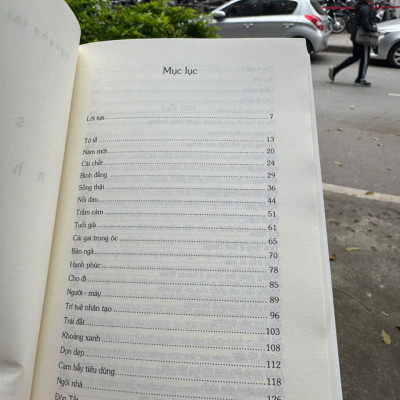 Mục lục
Lời tựa 7
Tử tế 13
Năm mới 20
Cái chết 24
Bình đẳng 29
Sống thật 36
Nỗi đau 44
Trầm cảm 51
Tuổi già 61
Cái gai trong óc 65
Bản ngã 70
Hạnh phúc 78
Cho đi 85
Người - máy 89
Trí tuệ nhân tạo 96
Trái đất 103
Khoảng xanh 108
Dọn dẹp 112
Cạm bẫy tiêu dùng 118
Ngôi nhà 126
Đón Tết